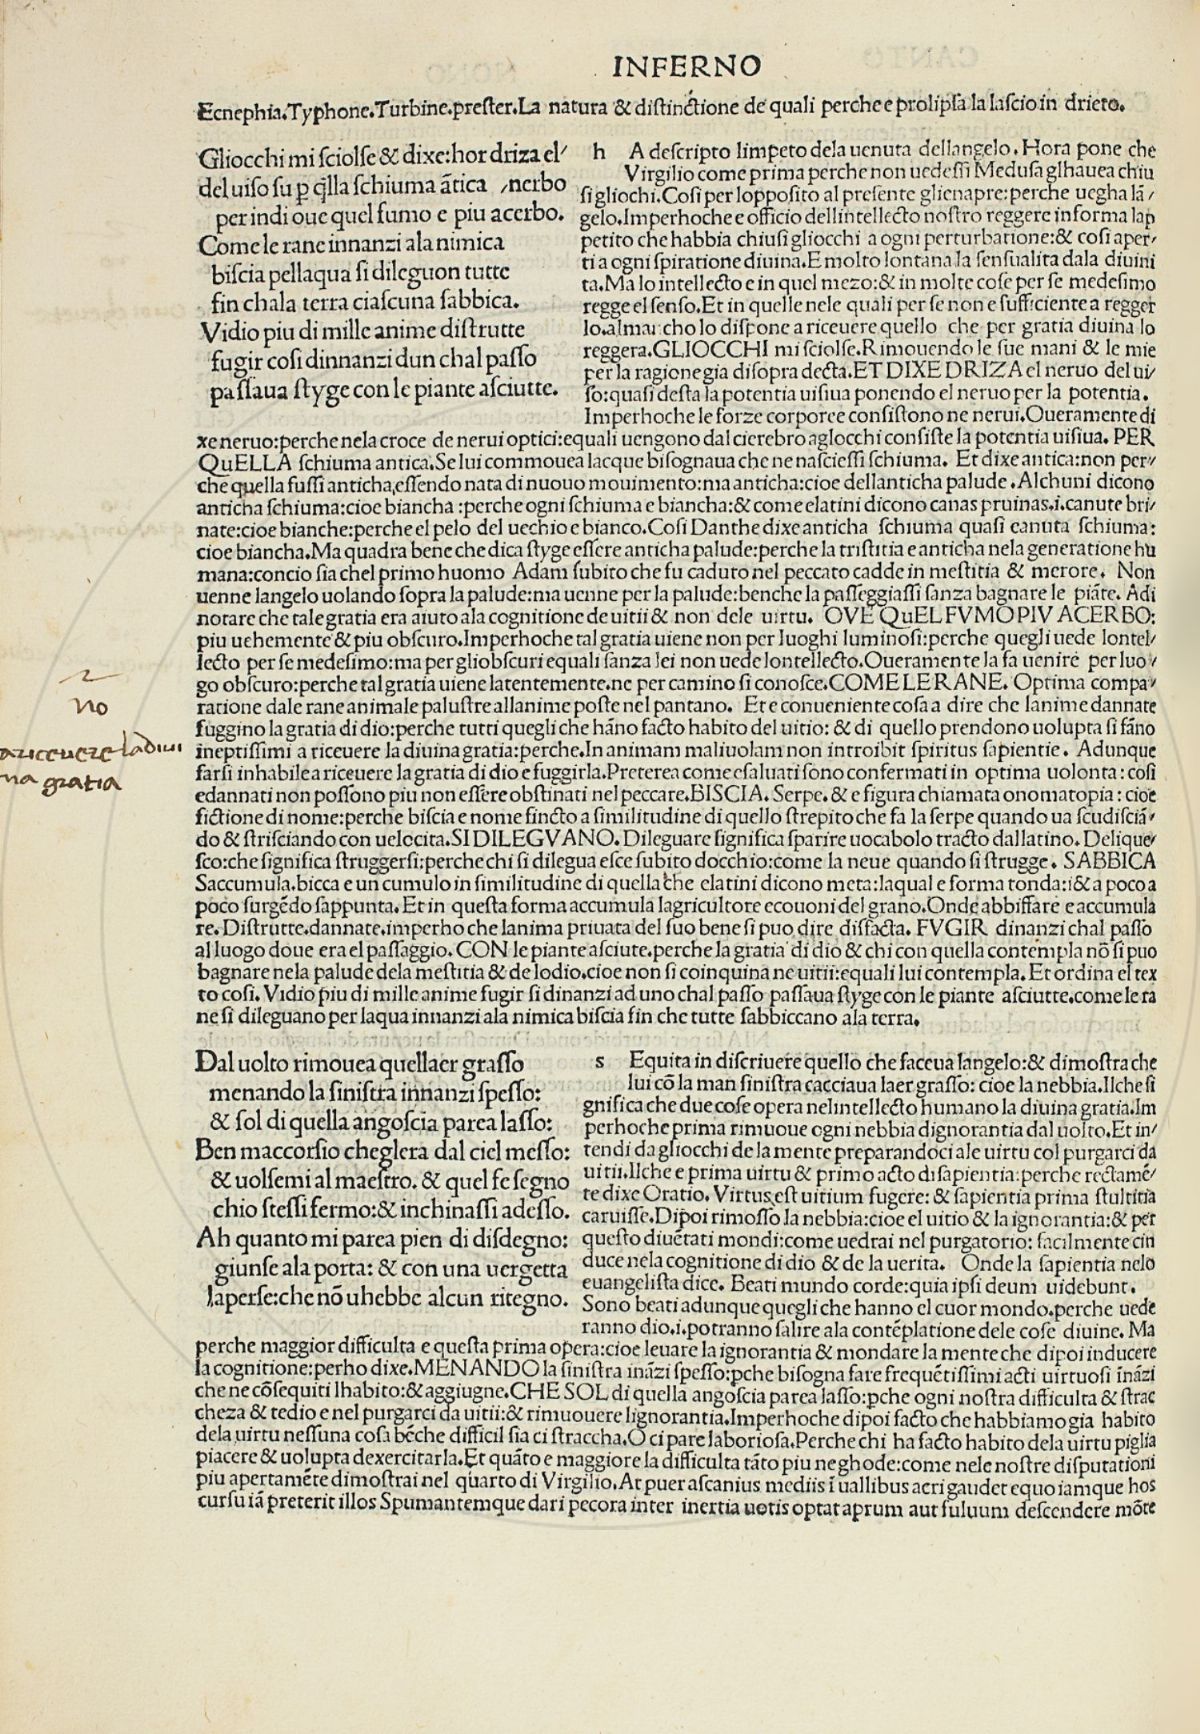 INFERNO
Ecnephia.Typhone.Turbine.prester.La natura & distinctione de quali perche e prolipsa la lascio in drieto.
Gliocchi mi sciolse & dixe:hor driza el/
del uiso su p q̃lla schiuma ãtica ,nerbo
per indi oue quel fumo e piu acerbo.
Come le rane innanzi ala nimica
biscia pellaqua si dileguon tutte
fin chala terra ciascuna sabbica.
Vidio piu di mille anime distrutte
fugir cosi dinnanzi dun chal passo
passaua styge con le piante asciutte.
h A descripto limpeto dela uenuta dellangelo. Hora pone che
Virgilio come prima perche non uedessi Medusa glhauea chiu
si gliochi. Cosi per lopposito al presente glienapre:perche uegha lã/
gelo.Imperhoche e officio dellintellecto nostro reggere informa lap
petito che habbia chiusi gliocchi a ogni perturbatione:& cosi aper/
ti a ogni spiratione diuina.E molto lontana la sensualita dala diuini
ta.Ma lo intellecto e in quel mezo:& in molte cose per se medesimo
regge el senso.Et in quelle nele quali per se non e sufficiente a regger
lo.almai cho lo dispone a riceuere quello che per gratia diuina lo
reggera.GLIOCCHI mi sciolse.Rimouendo le sue mani & le mie
per la ragione gia disopra decta.ET DIXE DRIZA el neruo del ui/
so:quasi desta la potentia uisiua ponendo el neruo per la potentia.
Imperhoche le forze corporee consistono ne nerui.Oueramente di
xe neruo:perche nela croce de nerui optici:equali uengono dal cierebro aglocchi consiste la potentia uisiua. PER
QuELLA schiuma antica.Se lui commouea lacque bisognaua che ne nasciessi schiuma. Et dixe antica:non per/
che quella fussi anticha,essendo nata di nuouo mouimento:ma anticha:cioe dellanticha palude.Alchuni dicono
anticha schiuma:cioe biancha :perche ogni schiuma e biancha:& come elatini dicono canas pruinas.i.canute bri/
nate:cioe bianche:perche el pelo del uechio e bianco. Cosi Danthe dixe anticha schiuma quasi canuta schiuma:
cioe biancha.Ma quadra bene che dica styge essere anticha palude:perche la tristitia e anticha nela generatione hu
mana:concio sia chel primo huomo Adam subito che fu caduto nel peccato cadde in mestitia & merore. Non
uenne langelo uolando sopra la palude:ma uenne per la palude:benche la passeggiassi sanza bagnare le piãte. Adi
notare che tale gratia era aiuto ala cognitione de uitii & non dele uirtu. OVE QuEL FVMO PIV ACERBO:
piu uehemente & piu obscuro.Imperhoche tal gratia uiene non per luoghi luminosi:perche quegli uede lontel/
lecto per se medesimo:ma per gliobscuri equali sanza lei non uede lontellecto.Oueramente la fa uenire per luo/
go obscuro:perche tal gratia uiene latentemente.ne per camino si conosce.COME LE RANE. Optima compa/
ratione dale rane animale palustre allanime poste nel pantano. Et e conueniente cosa a dire che lanime dannate
fuggino la gratia di dio:perche tutti quegli che hãno facto habito del uitio: & di quello prendono uolupta si fãno
ineptissimi a riceuere la diuina gratia:perche.In animam maliuolam non introibit spiritus sapientie. Adunque
farsi inhabile a riceuere la gratia di dio e fuggirla.Preterea come esaluati sono confermati in optima uolonta: cosi
edannati non possono piu non essere obstinati nel peccare.BISCIA. Serpe. & e figura chiamata onomatopia: cioe
fictione di nome:perche biscia e nome fincto a similitudine di quello strepito che fa la serpe quando ua scudisciã/
do & strisciando con uelocita.SI DILEGVANO. Dileguare significa sparire uocabolo tracto dallatino. Delique/
sco:che significa struggersi:perche chi si dilegua esce subito docchio:come la neue quando si strugge. SABBICA
Saccumula.bicca e un cumulo in similitudine di quella che elatini dicono meta:laqual e forma tonda:i& a poco a
poco surgẽdo sappunta. Et in questa forma accumula lagricultore ecouoni del grano.Onde abbiffare e accumula
re. Distrutte.dannate.imperho che lanima priuata del suo bene si puo dire disfacta. FVGIR dinanzi chal passo
al luogo doue era el passaggio. CON le piante asciute.perche la gratia di dio & chi con quella contempla nõ si puo
bagnare nela palude dela mestitia & de lodio.cioe non si coinquina ne uitii:equali lui contempla. Et ordina el tex
to cosi. Vidio piu di mille anime fugir si dinanzi ad uno chal passo passaua styge con le piante asciutte.come le ra
ne si dileguano per laqua innanzi ala nimica biscia fin che tutte sabbiccano ala terra.
no
a riceuere la diui
na gratia
Dal uolto rimouea quellaer grasso
menando la sinistra innanzi spesso:
& sol di quella angoscia parea lasso:
Ben maccorsio cheglera dal ciel messo:
& uolsemi al maestro. & quel fe segno
chio stessi fermo:& inchinassi adesso.
Ah quanto mi parea pien di disdegno:
giunse ala porta: & con una uergetta
laperse:che nõ uhebbe alcun ritegno.
s Equita in discriuere quello che faceua langelo:& dimostra che
lui cõ la man sinistra cacciaua laer grasso: cioe la nebbia.Ilche si
gnifica che due cose opera nelintellecto humano la diuina gratia.Im
perhoche prima rimuoue ogni nebbia dignorantia dal uolto. Et in/
tendi da gliocchi de la mente preparandoci ale uirtu col purgarci da
uitii.Ilche e prima uirtu & primo acto di sapientia:perche rectamẽ/
te dixe Oratio. Virtus est uitium fugere: & sapientia prima stultitia
caruisse.Dipoi rimosso la nebbia:cioe el uitio & la ignorantia:& per
questo diuẽtati mondi:come uedrai nel purgatorio: facilmente cin
duce nela cognitione di dio & de la uerita. Onde la sapientia nelo
euangelista dice. Beati mundo corde:quia ipsi deum uidebunt.
Sono beati adunque quegli che hanno el cuor mondo.perche uede
ranno dio.i.potranno salire ala contẽplatione dele cose diuine. Ma
perche maggior difficulta e questa prima opera:cioe leuare la ignorantia & mondare la mente che dipoi inducere
la cognitione:perho dixe.MENANDO la sinistra inãzi spesso:pche bisogna fare frequẽtissimi acti uirtuosi inãzi
che ne cõsequiti lhabito:& aggiugne.CHE SOL di quella angoscia parea lasso:pche ogni nostra difficulta & strac
cheza & tedio e nel purgarci da uitii:& rimuouere lignorantia.Imperhoche dipoi facto che habbiamo gia habito
dela uirtu nessuna cosa bẽche difficil sia ci straccha.O ci pare laboriosa.Perche chi ha facto habito dela uirtu piglia
piacere & uolupta dexercitarla.Et quãto e maggiore la difficulta tãto piu ne ghode:come nele nostre disputationi
piu apertamẽte dimostrai nel quarto di Virgilio. At puer ascanius mediis ĩ uallibus acri gaudet equo iamque hos
cursu iã preterit illos Spumantemque dari pecora inter inertia uotis optat aprum aut fuluum descendere mõte